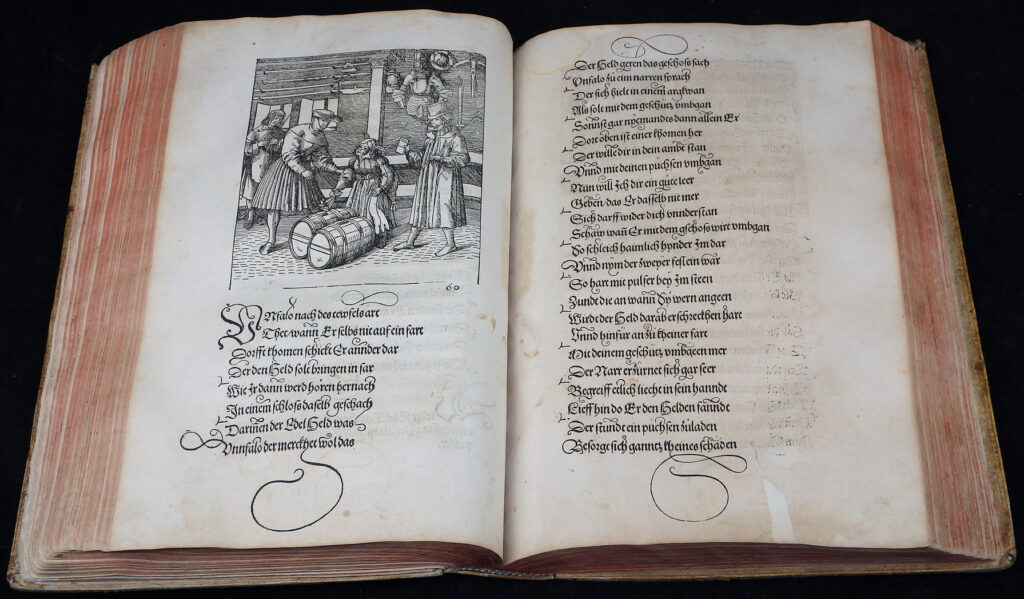 60
Vnfalo nach des tewfels art
Thet/wann Er selbs nit auf ein fart
Dorfft khomen schickt Er annder dar
Der den Held solt bringen in far
Wie Ir dann werd hören hernach
In einem schloss daselb geschach
Darinnen der Edel Held was
Vnnfalo der merckhet wol das
Der Held geren das geschoss sach
Vnfalo zu eim narren sprach
Der sich hielt in einem argkwan
Als solt mit dem geschütz vmbgan
Sonnst gar nyemandts dann allein Er
Dort oben ist einer khomen her
Der wille dir in dein ambt stan
Vnnd mit deinen püchsen vmbgan
Nun will Ich dir ein gute leer
Geben/das Er dasselb nit mer
Sich darff wider dich vnnderstan
Schaw wañ Er mit dem gschoss wirt vmbgan
So schleich haimlich hynder Im dar
Vnnd nym der zweyer feslein war
So hart mit pulfer bey Im steen
Zundt die an wann Sy wern angeen
Wirdt der Held darab erschreckhen hart
Vnnd hinfur an zu kheiner fart
Mit deinem geschütz vmbgeen mer
Der Narr erzürnet sich gar seer
Begreiff etlich liecht in sein hanndt
Lieff hin do Er den Helden fanndt
Der stundt ein püchsen zuladen
Besorgt sich ganntz kheines schaden